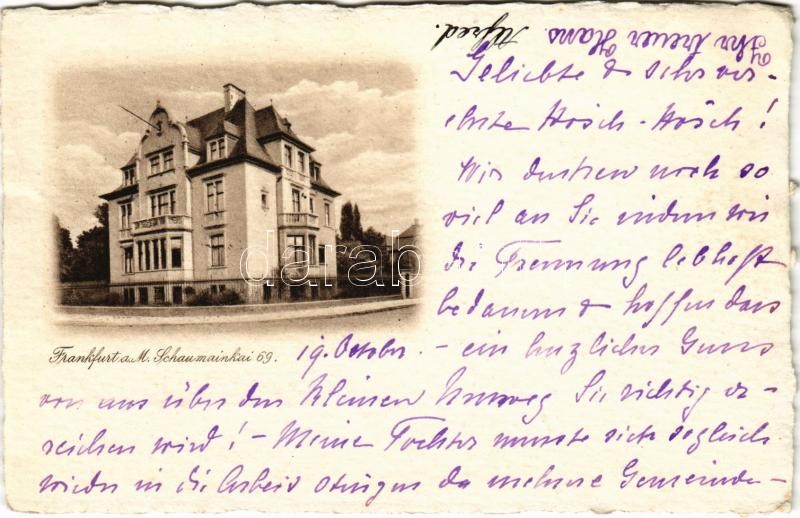 Alfred.
Ihr treuer Hans
Geliebte & sehr ver-
ehrte Hosch-Hosch!
Wir denken noch so
viel an Sie indem wir
die Trennung lebhaft
bedauern & hoffen dass
Frankfurt a.M. Schaumainkai 69.
19. October. – ein herzlicher Gruss
von uns über den kleinen Umweg Sie richtig er-
reichen wird! – Meine Tochter musste sich sogleich
wieder in die Arbeit stürzen da mehrere Gemeinde-
darab